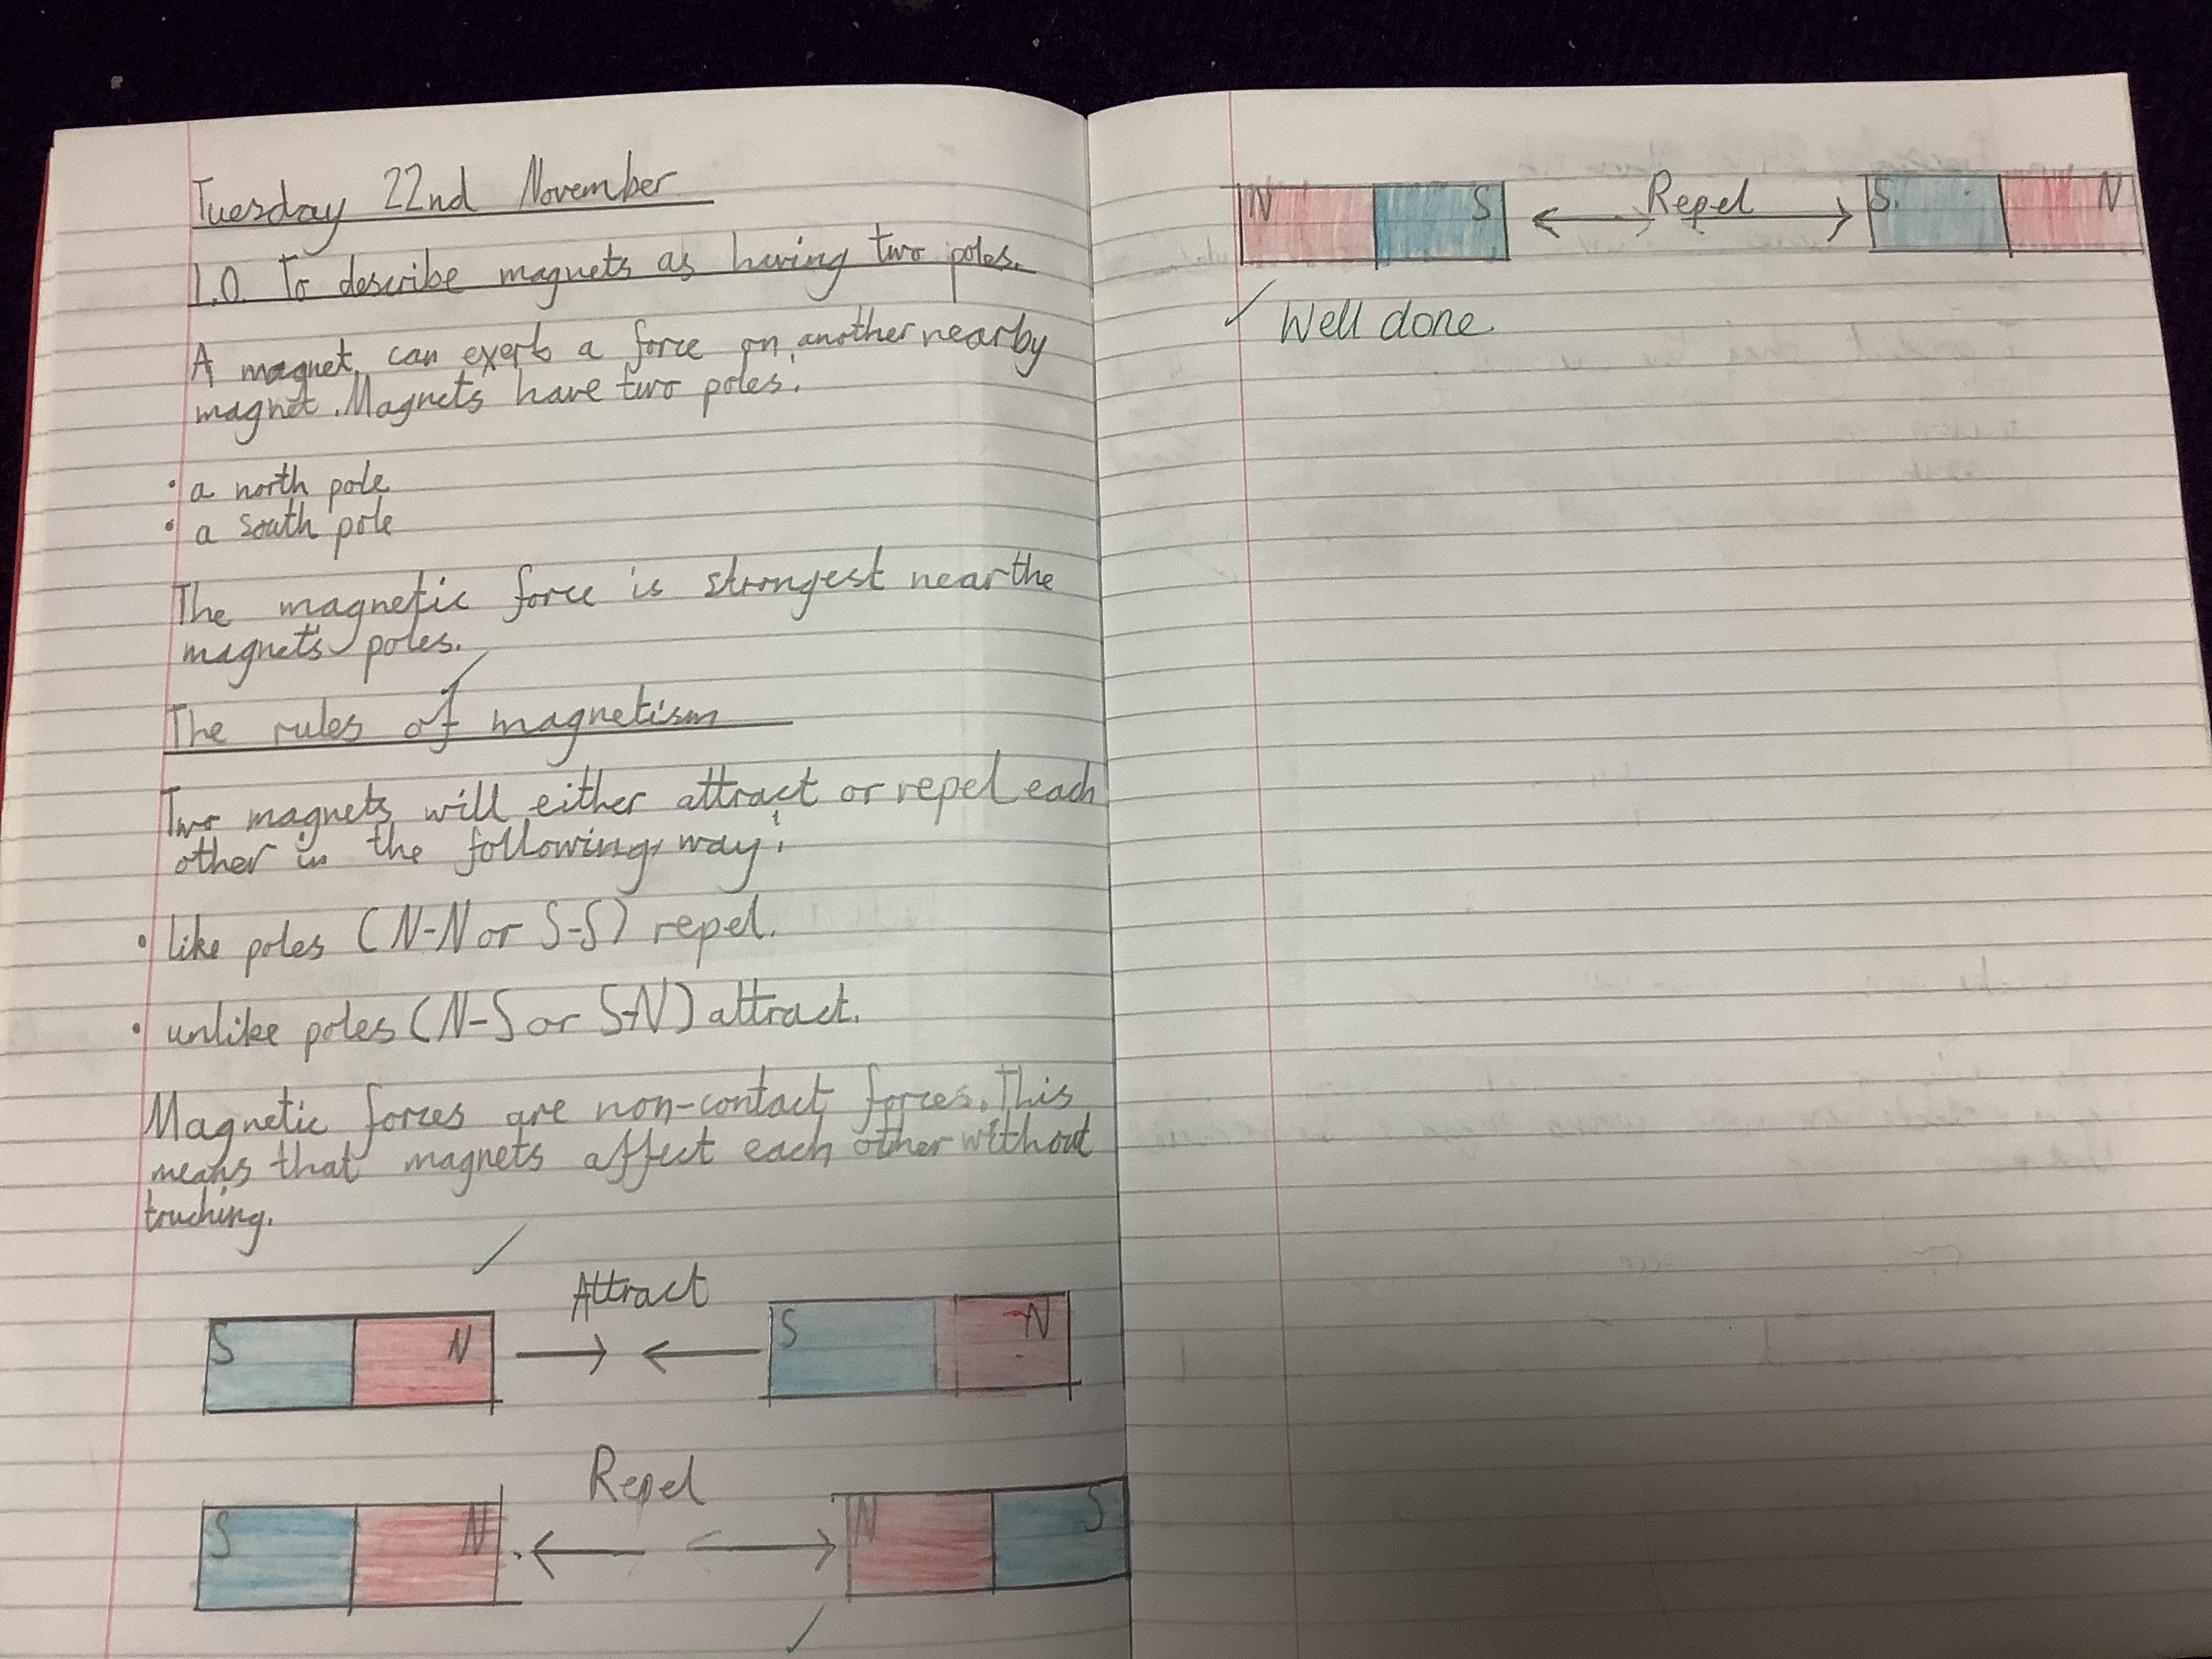 Tuesday 22nd November
L.O. To describe magnets as having two poles.
A magnet can exert a force on another nearby
magnet. Magnets have two poles:
• a north pole
• a south pole
The magnetic force is strongest near the
magnet's poles.
The rules of magnetism
Two magnets will either attract or repel each
other in the following way:
• like poles (N-N or S-S) repel.
• unlike poles (N-S or S-N) attract.
Magnetic forces are non-contact forces. This
means that magnets affect each other without
touching.
Attract
S N S N
Repel
S N N S
N S Repel S N
Well done